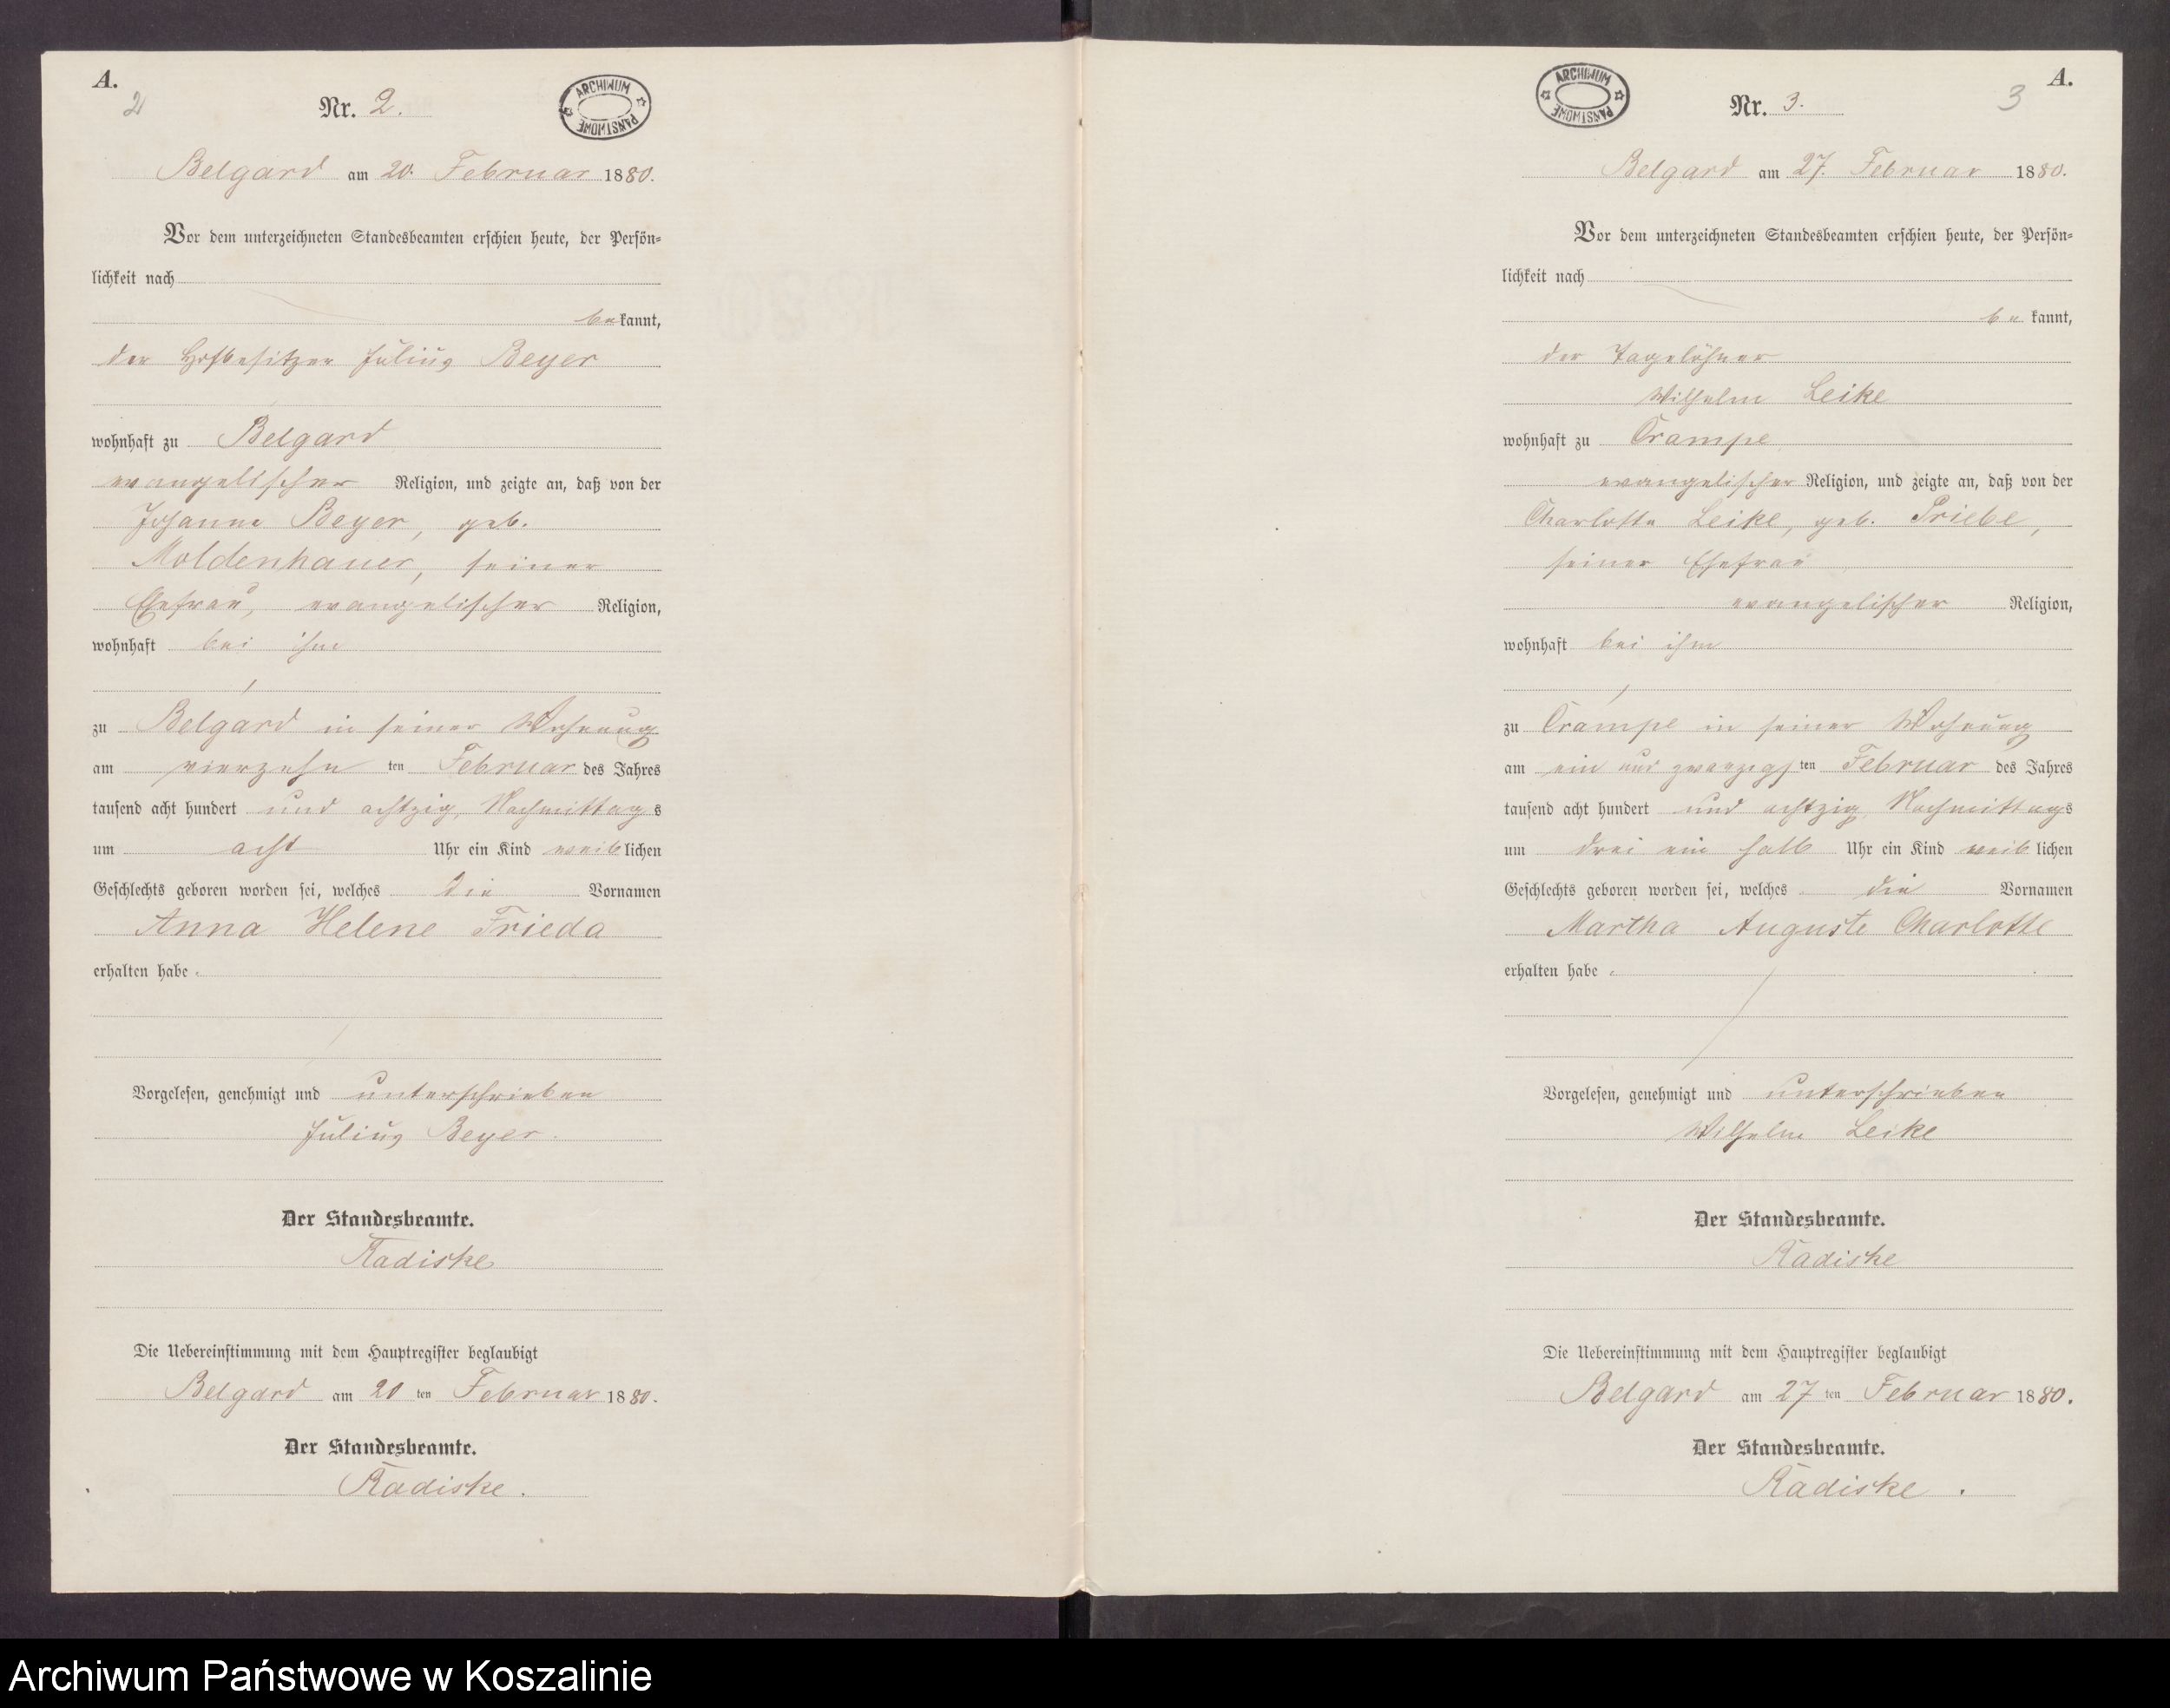 A.
2
Nr. 2.
ARCHIWUM PAŃSTWOWE
Belgard am 20. Februar 1880.
Vor dem unterzeichneten Standesbeamten erschien heute, der Persön-
lichkeit nach
bekannt,
der Hofbesitzer Julius Beyer
wohnhaft zu Belgard
evangelischer Religion, und zeigte an, daß von der
Johanne Beyer, geb.
Moldenhauer, seiner
Ehefrau, evangelischer Religion,
wohnhaft bei ihm
zu Belgard in seiner Wohnung
am vierzehn ten Februar des Jahres
tausend acht hundert und achtzig, Nachmittags
um acht Uhr ein Kind weiblichen
Geschlechts geboren worden sei, welches die Vornamen
Anna Helene Frieda
erhalten habe.
Vorgelesen, genehmigt und unterschrieben
Julius Beyer.
Der Standesbeamte.
Radiske
Die Uebereinstimmung mit dem Hauptregister beglaubigt
Belgard am 20 ten Februar 1880.
Der Standesbeamte.
Radiske.
A.
3
Nr. 3.
ARCHIWUM PAŃSTWOWE
Belgard am 27. Februar 1880.
Vor dem unterzeichneten Standesbeamten erschien heute, der Persön-
lichkeit nach
be kannt,
der Tagelöhner
Wilhelm Leike
wohnhaft zu Crampe
evangelischer Religion, und zeigte an, daß von der
Charlotte Leike, geb. Priebe,
seiner Ehefrau
evangelischer Religion,
wohnhaft bei ihm
zu Crampe in seiner Wohnung
am ein und zwanzigs ten Februar des Jahres
tausend acht hundert und achtzig Nachmittags
um drei ein halb Uhr ein Kind weiblichen
Geschlechts geboren worden sei, welches die Vornamen
Martha Auguste Charlotte
erhalten habe.
Vorgelesen, genehmigt und unterschrieben
Wilhelm Leike
Der Standesbeamte.
Radiske
Die Uebereinstimmung mit dem Hauptregister beglaubigt
Belgard am 27 ten Februar 1880.
Der Standesbeamte.
Radiske.
Archiwum Państwowe w Koszalinie